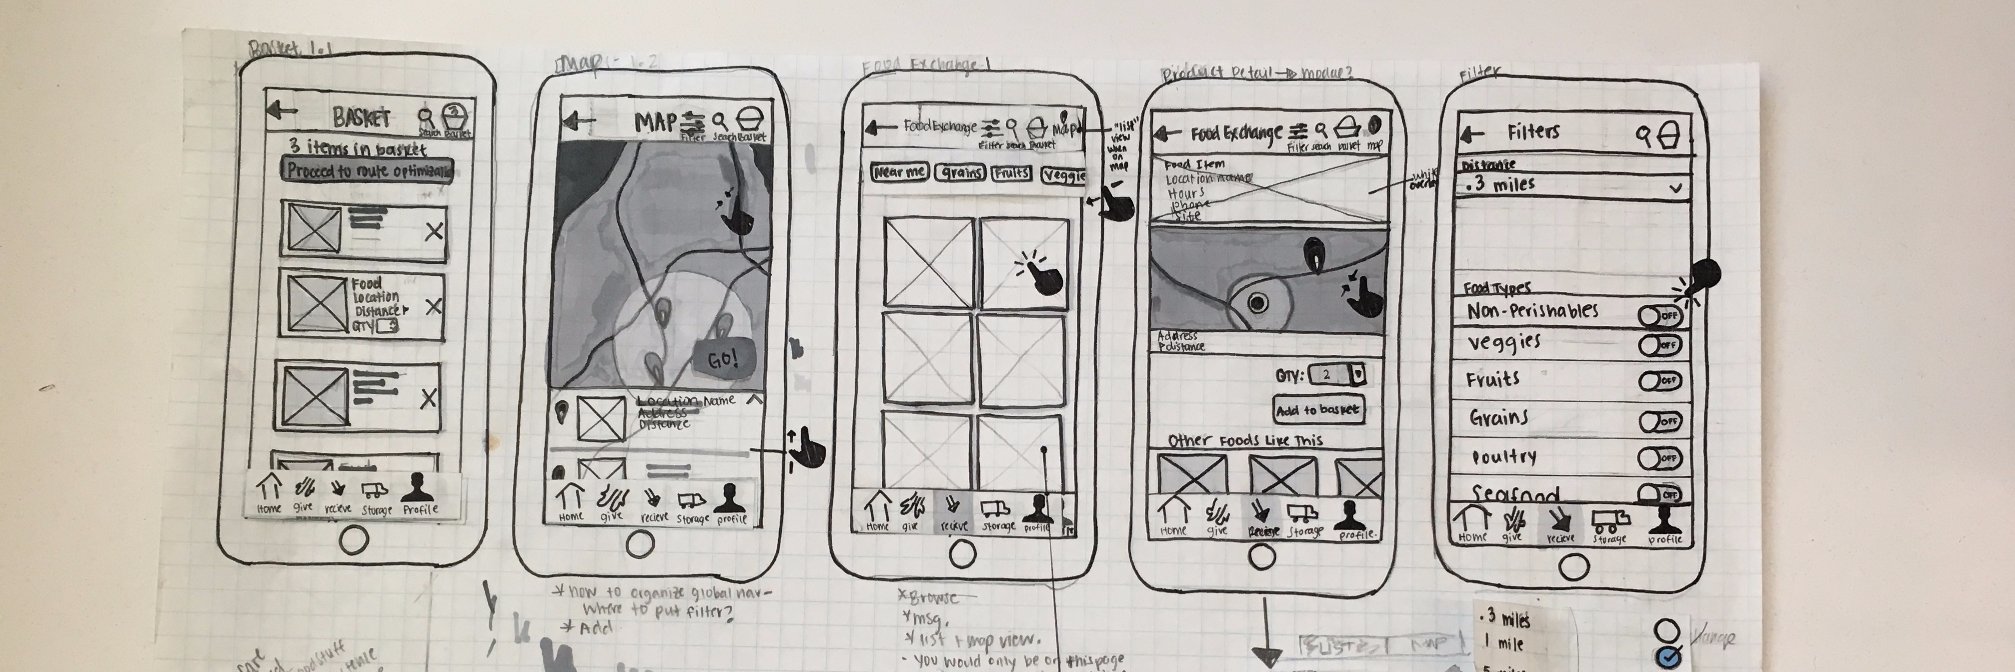 Basket 1.1
BASKET
3
Search Basket
3 items in basket
Proceed to route optimizati
Food
Location
Distance
QTY 3
Home give recieve Storage Profile
Map - 1.2
MAP
Filter Search Basket
GO!
Location Name
Address
Distance
Home give recieve Storage profile
* How to organize global nav -
where to put filter?
* Add
Food Exchange 1
Food Exchange Map
Filter Search Basket
"list"
view
when
on
map
Near me Grains Fruits Veggie
Home give recieve Storage profile
* Browse
* msg.
* list + map view.
- you would only be on this page
Product Detail → modal?
Food Exchange
Filter search basket map
Food Item
Location name
Hours
Phone
Site
white
overlay
Address
Distance
QTY: 2
Add to basket
Other Foods Like This
Home give Recieve Storage profile.
Filter
Filters
Distance
.3 miles
Food Types
Non-Perishables OFF
veggies OFF
Fruits OFF
Grains OFF
Poultry OFF
Seafood OFF
Home give recieve Storage profile
.3 miles
1 mile
5 miles